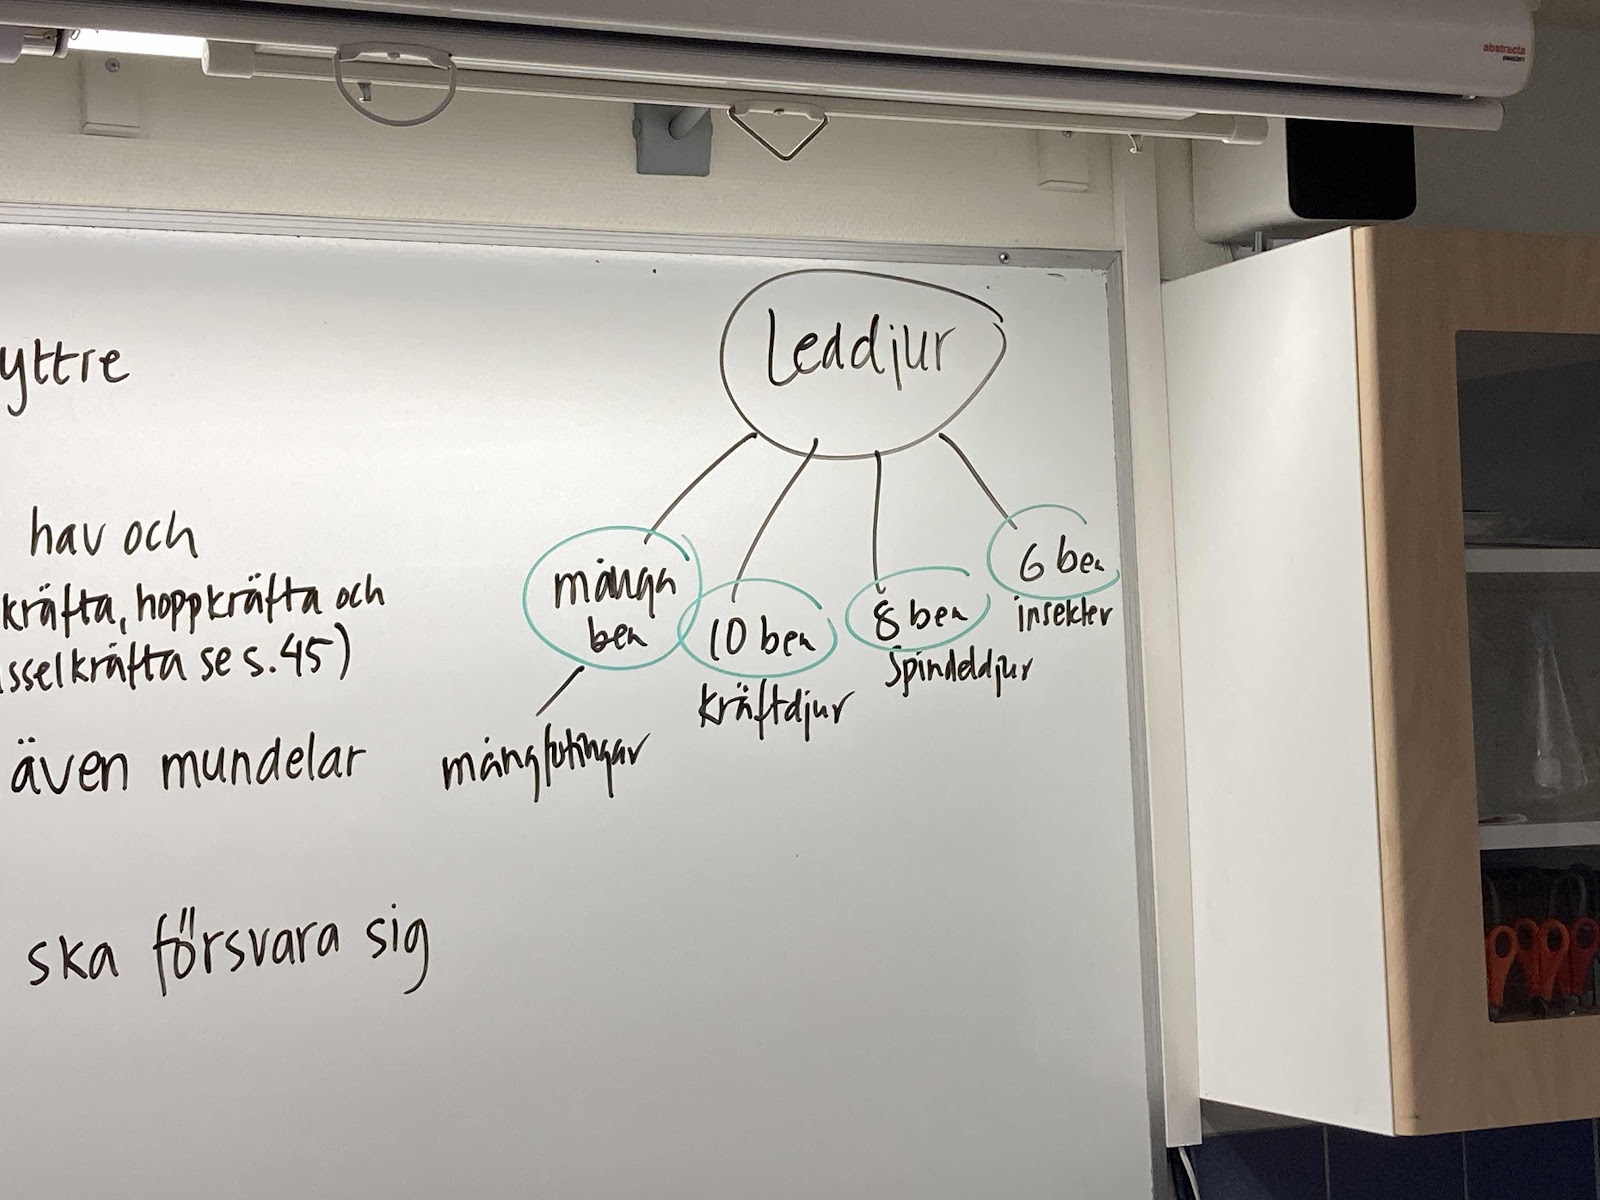 abstracta
yttre
hav och
kräfta, hoppkräfta och
sselkräfta se s. 45)
även mundelar
ska försvara sig
Leddjur
många
ben
mångfotingar
10 ben
kräftdjur
8 ben
Spindeldjur
6 ben
insekter